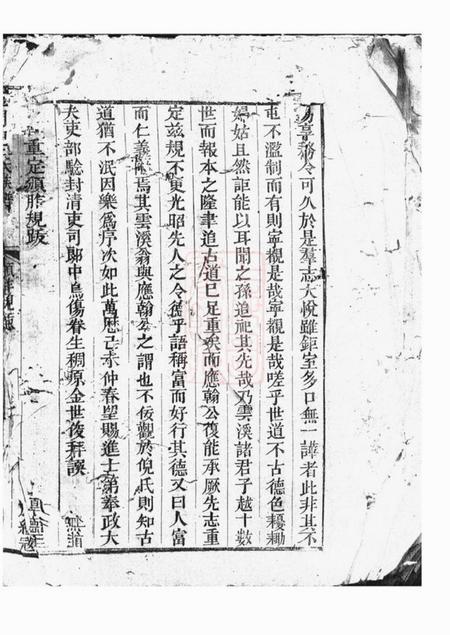 易享務令可久於是羣志大悅雖鉅室多口無一譁者此非其不
重不濫制而有則寧覬是哉寧覬是哉嗟乎世道不古德色耰鋤
婦姑且然詎能以耳聞之孫追祀其先哉乃雲溪諸君子越十數
世而報本之隆聿追古道已足重矣而應翰公復能承厥先志重
定茲規不更光昭先人之令德乎語稱富而好行其德又曰人富
而仁義附焉其雲溪翁與應翰公之謂也不佞觀於倪氏則知古
道猶不泯因樂爲序次如此萬曆己未仲春望賜進士第奉政大
夫吏部驗封清吏司郎中烏傷春生稠原金世俊拜譔
重定頒胙規跋